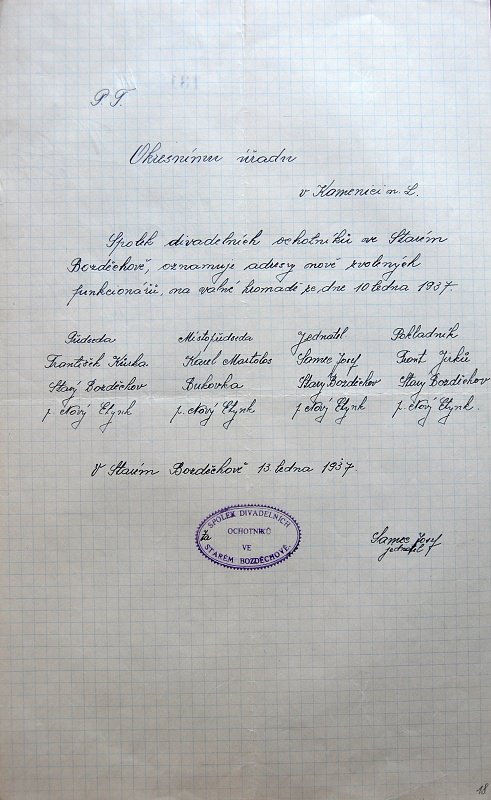 P. T.
Okresnímu úřadu
v Kamenici n. L.
Spolek divadelních ochotníků ve Starém
Bozděchově, oznamuje adresy nově zvolených
funkcionářů, na valné hromadě ze dne 10 ledna 1937.
Předseda Místopředseda Jednatel Pokladník
František Karel Martolos Samec Josef Frant. Jirků
Starý Bozděchov Bukovka Starý Bozděchov Starý Bozděchov
p. Nový Etynk p. Nový Etynk p. Nový Etynk p. Nový Etynk.
V Starém Bozděchově 13. ledna 1937.
SPOLEK DIVADELNÍCH
Za OCHOTNÍKŮ
VE
STARÉM BOZDĚCHOVĚ.
Samec Josef
jednatel
18